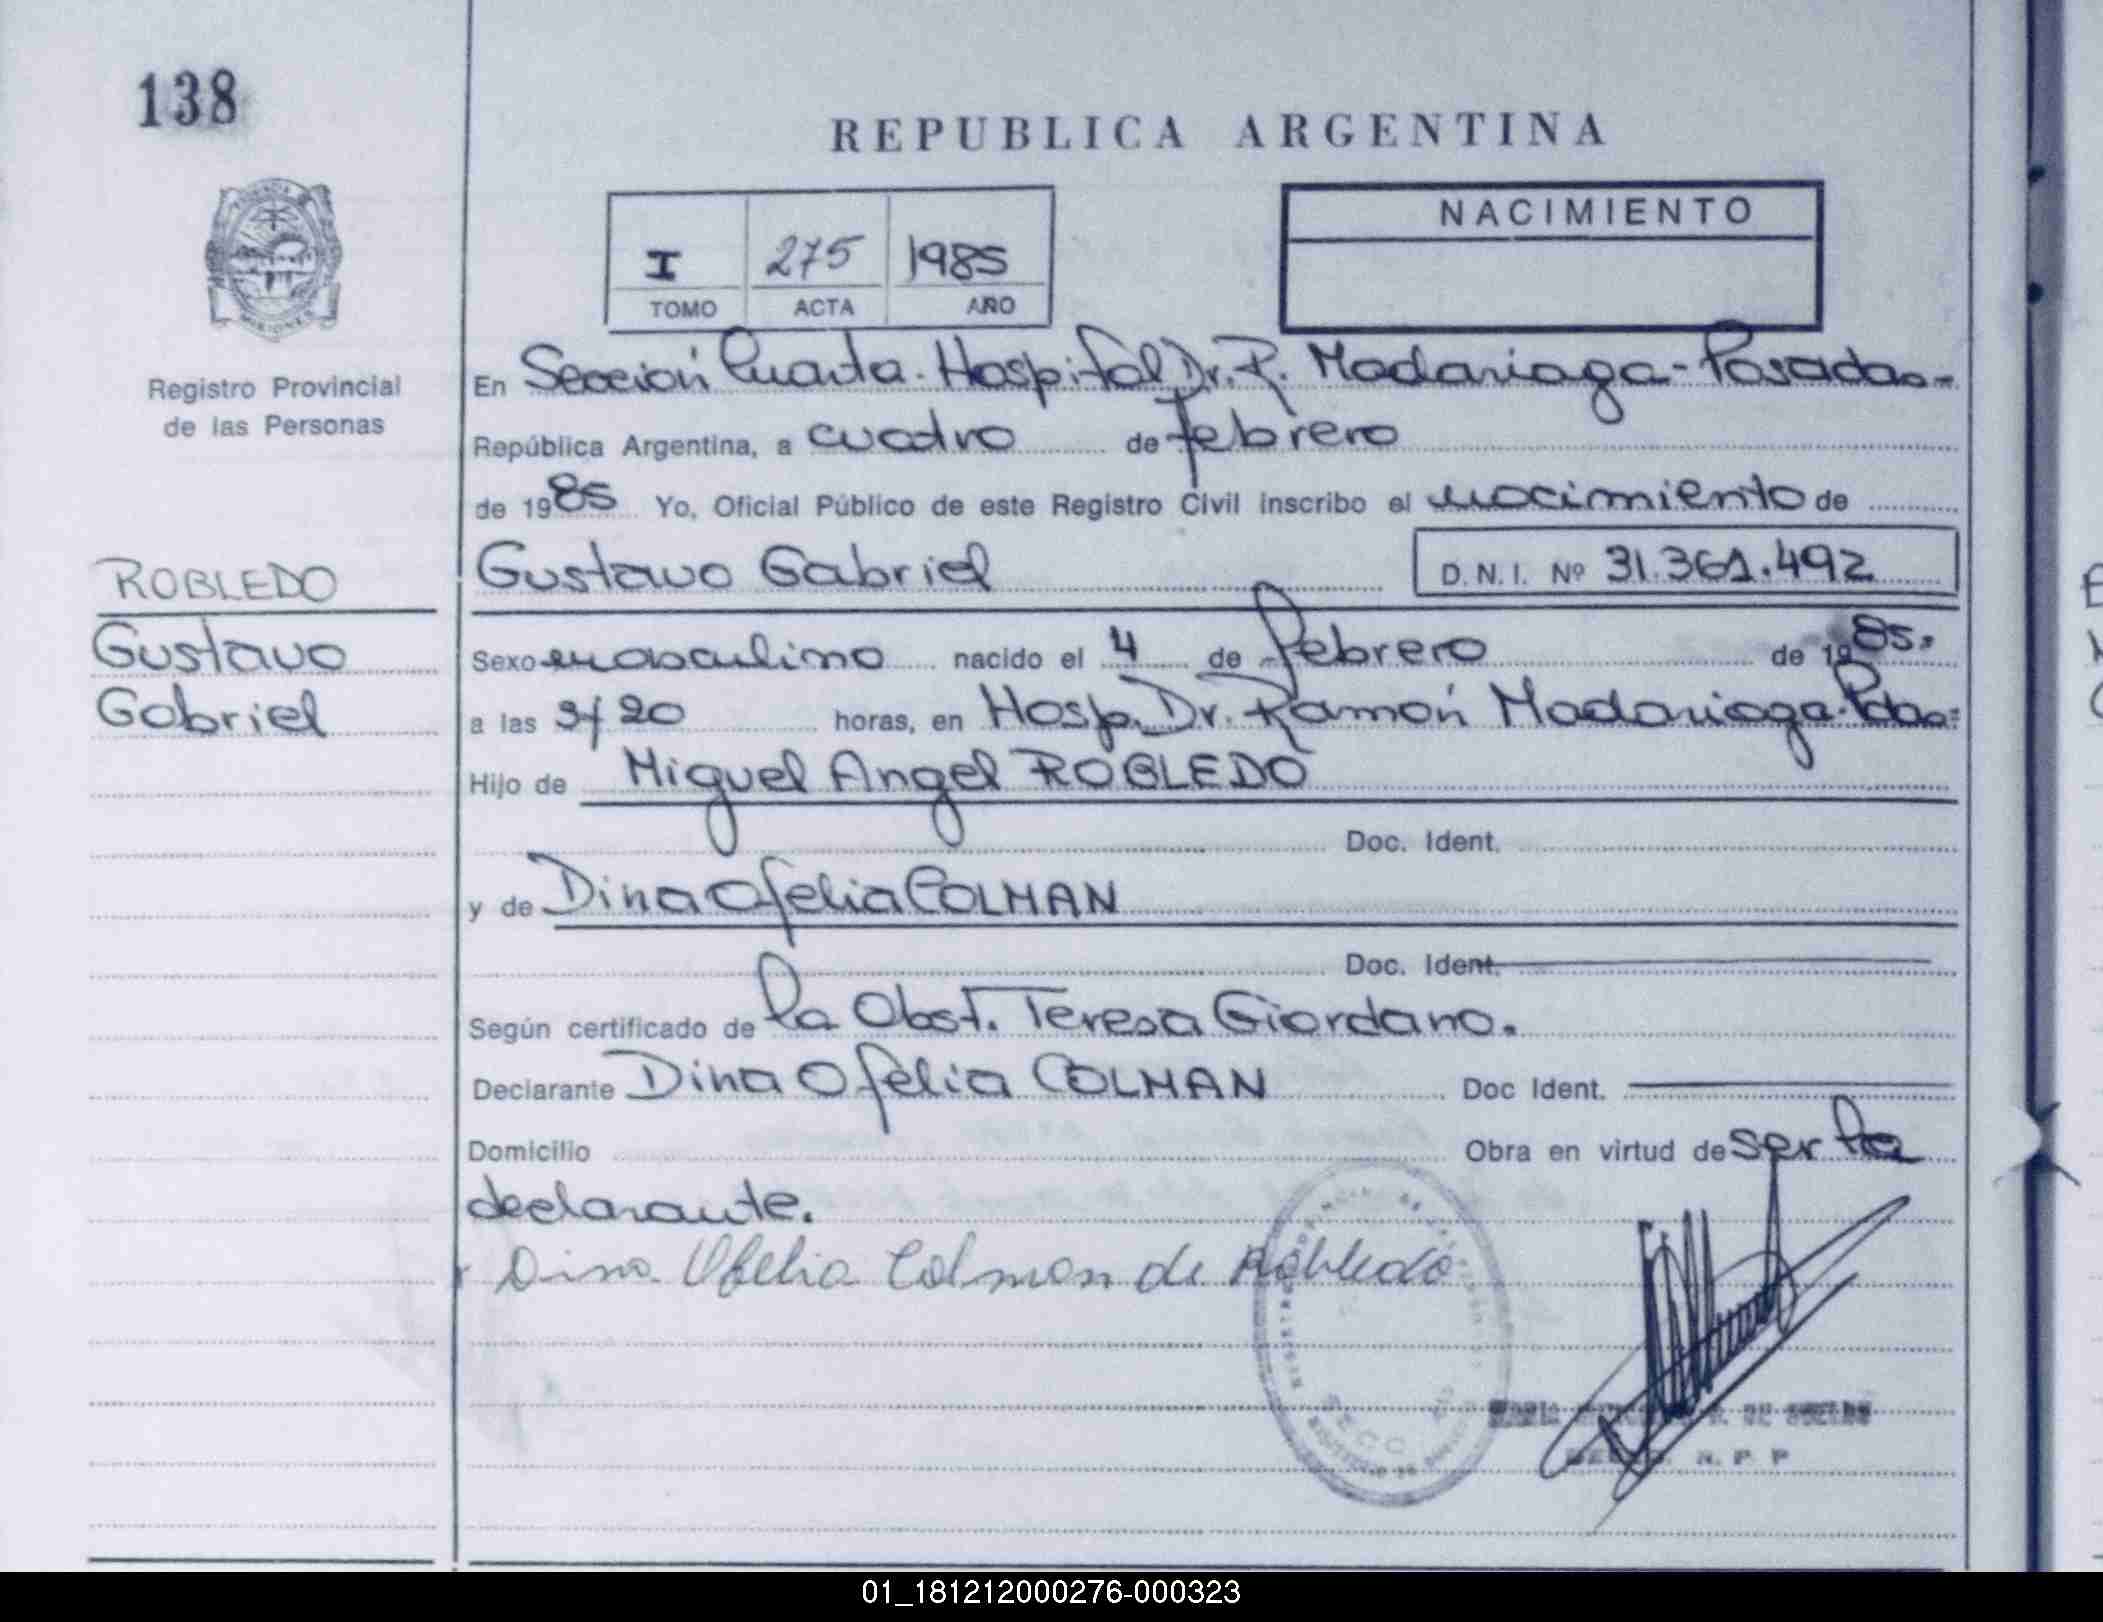 138
REPUBLICA ARGENTINA
NACIMIENTO
I 275 1985
TOMO ACTA AÑO
MISIONES
Registro Provincial
de las Personas
En Sección Cuarta. Hospital Dr. R. Madariaga - Posadas -
República Argentina, a cuatro de febrero
de 1985 Yo, Oficial Público de este Registro Civil inscribo el nacimiento de
ROBLEDO
Gustavo
Gabriel
Gustavo Gabriel D.N.I. Nº 31.361.492
Sexo masculino nacido el 4 de febrero de 1985.
a las 3/20 horas, en Hosp. Dr. Ramón Madariaga. Pdas.
Hijo de Miguel Angel ROBLEDO
Doc. Ident.
y de Dina Ofelia COLMAN
Doc. Ident.
Según certificado de la Obst. Teresa Giordano.
Declarante Dina Ofelia COLMAN Doc Ident.
Domicilio Obra en virtud de ser la
declarante.
Dina Ofelia Colman de Robledo
01_181212000276-000323